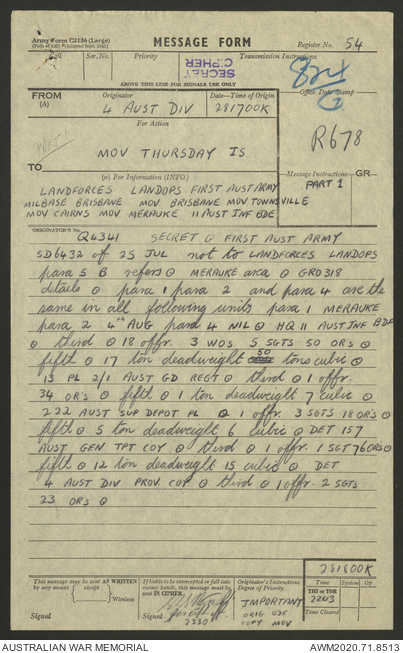 Army Form C2136 (Large)
MESSAGE FORM
Register No. 54
Call
Ser. No.
Priority
SECRET
CIPHER
Transmission Instructions
824
ABOVE THIS LINE FOR SIGNALS USE ONLY
FROM
(A)
Originator
4 AUST DIV
Date—Time of Origin
281700K
Office Date Stamp
For Action
R678
MOV THURSDAY IS
TO
(W) For Information (INFO.)
Message Instructions
GR
PART 1
LANDFORCES LANDOPS FIRST AUST ARMY
MILBASE BRISBANE MOV BRISBANE MOV TOWNSVILLE
MOV CAIRNS MOV MERAUKE 11 AUST INF BDE
ORIGINATOR'S NO.
Q4341 SECRET ⊙ FIRST AUST ARMY
SD6432 of 25 JUL not to LANDFORCES LANDOPS
para 5 B refers ⊙ MERAUKE area ⊙ GRO 318
details ⊙ para 1 para 2 and para 4 are the
same in all following units para 1 MERAUKE
para 2 4th AUG para 4 NIL ⊙ HQ 11 AUST INF BDE
⊙ third ⊙ 18 offr. 3 WOS 5 SGTS 50 OR's ⊙
fifth ⊙ 17 ton deadweight 50 tons cubic ⊙
13 PL 2/1 AUST GD REGT ⊙ third ⊙ 1 offr.
34 OR's ⊙ fifth ⊙ 1 ton deadweight 7 cubic ⊙
222 AUST SUP DEPOT PL ⊙ 1 offr. 3 SGTS 18 OR's ⊙
fifth ⊙ 5 ton deadweight 6 cubic ⊙ DET 157
AUST GEN TPT COY ⊙ third ⊙ 1 offr. 1 SGT 76 ORS ⊙
fifth ⊙ 12 ton deadweight 15 cubic ⊙ DET
4 AUST DIV PROV. COY ⊙ third ⊙ 1 offr. 2 SGTS
23 OR's ⊙
281800K
This message may be sent AS WRITTEN
by any means { except } Wireless
Signed
If liable to be intercepted or fall into
enemy hands, this message must be
sent IN CIPHER.
Signed
2330
Originator's Instructions
Degree of Priority
IMPORTANT
ORIG QDE
COPY MOV
Time
System
Op
THI or TOR
2243
Time Cleared
AUSTRALIAN WAR MEMORIAL
AWM2020.71.8513